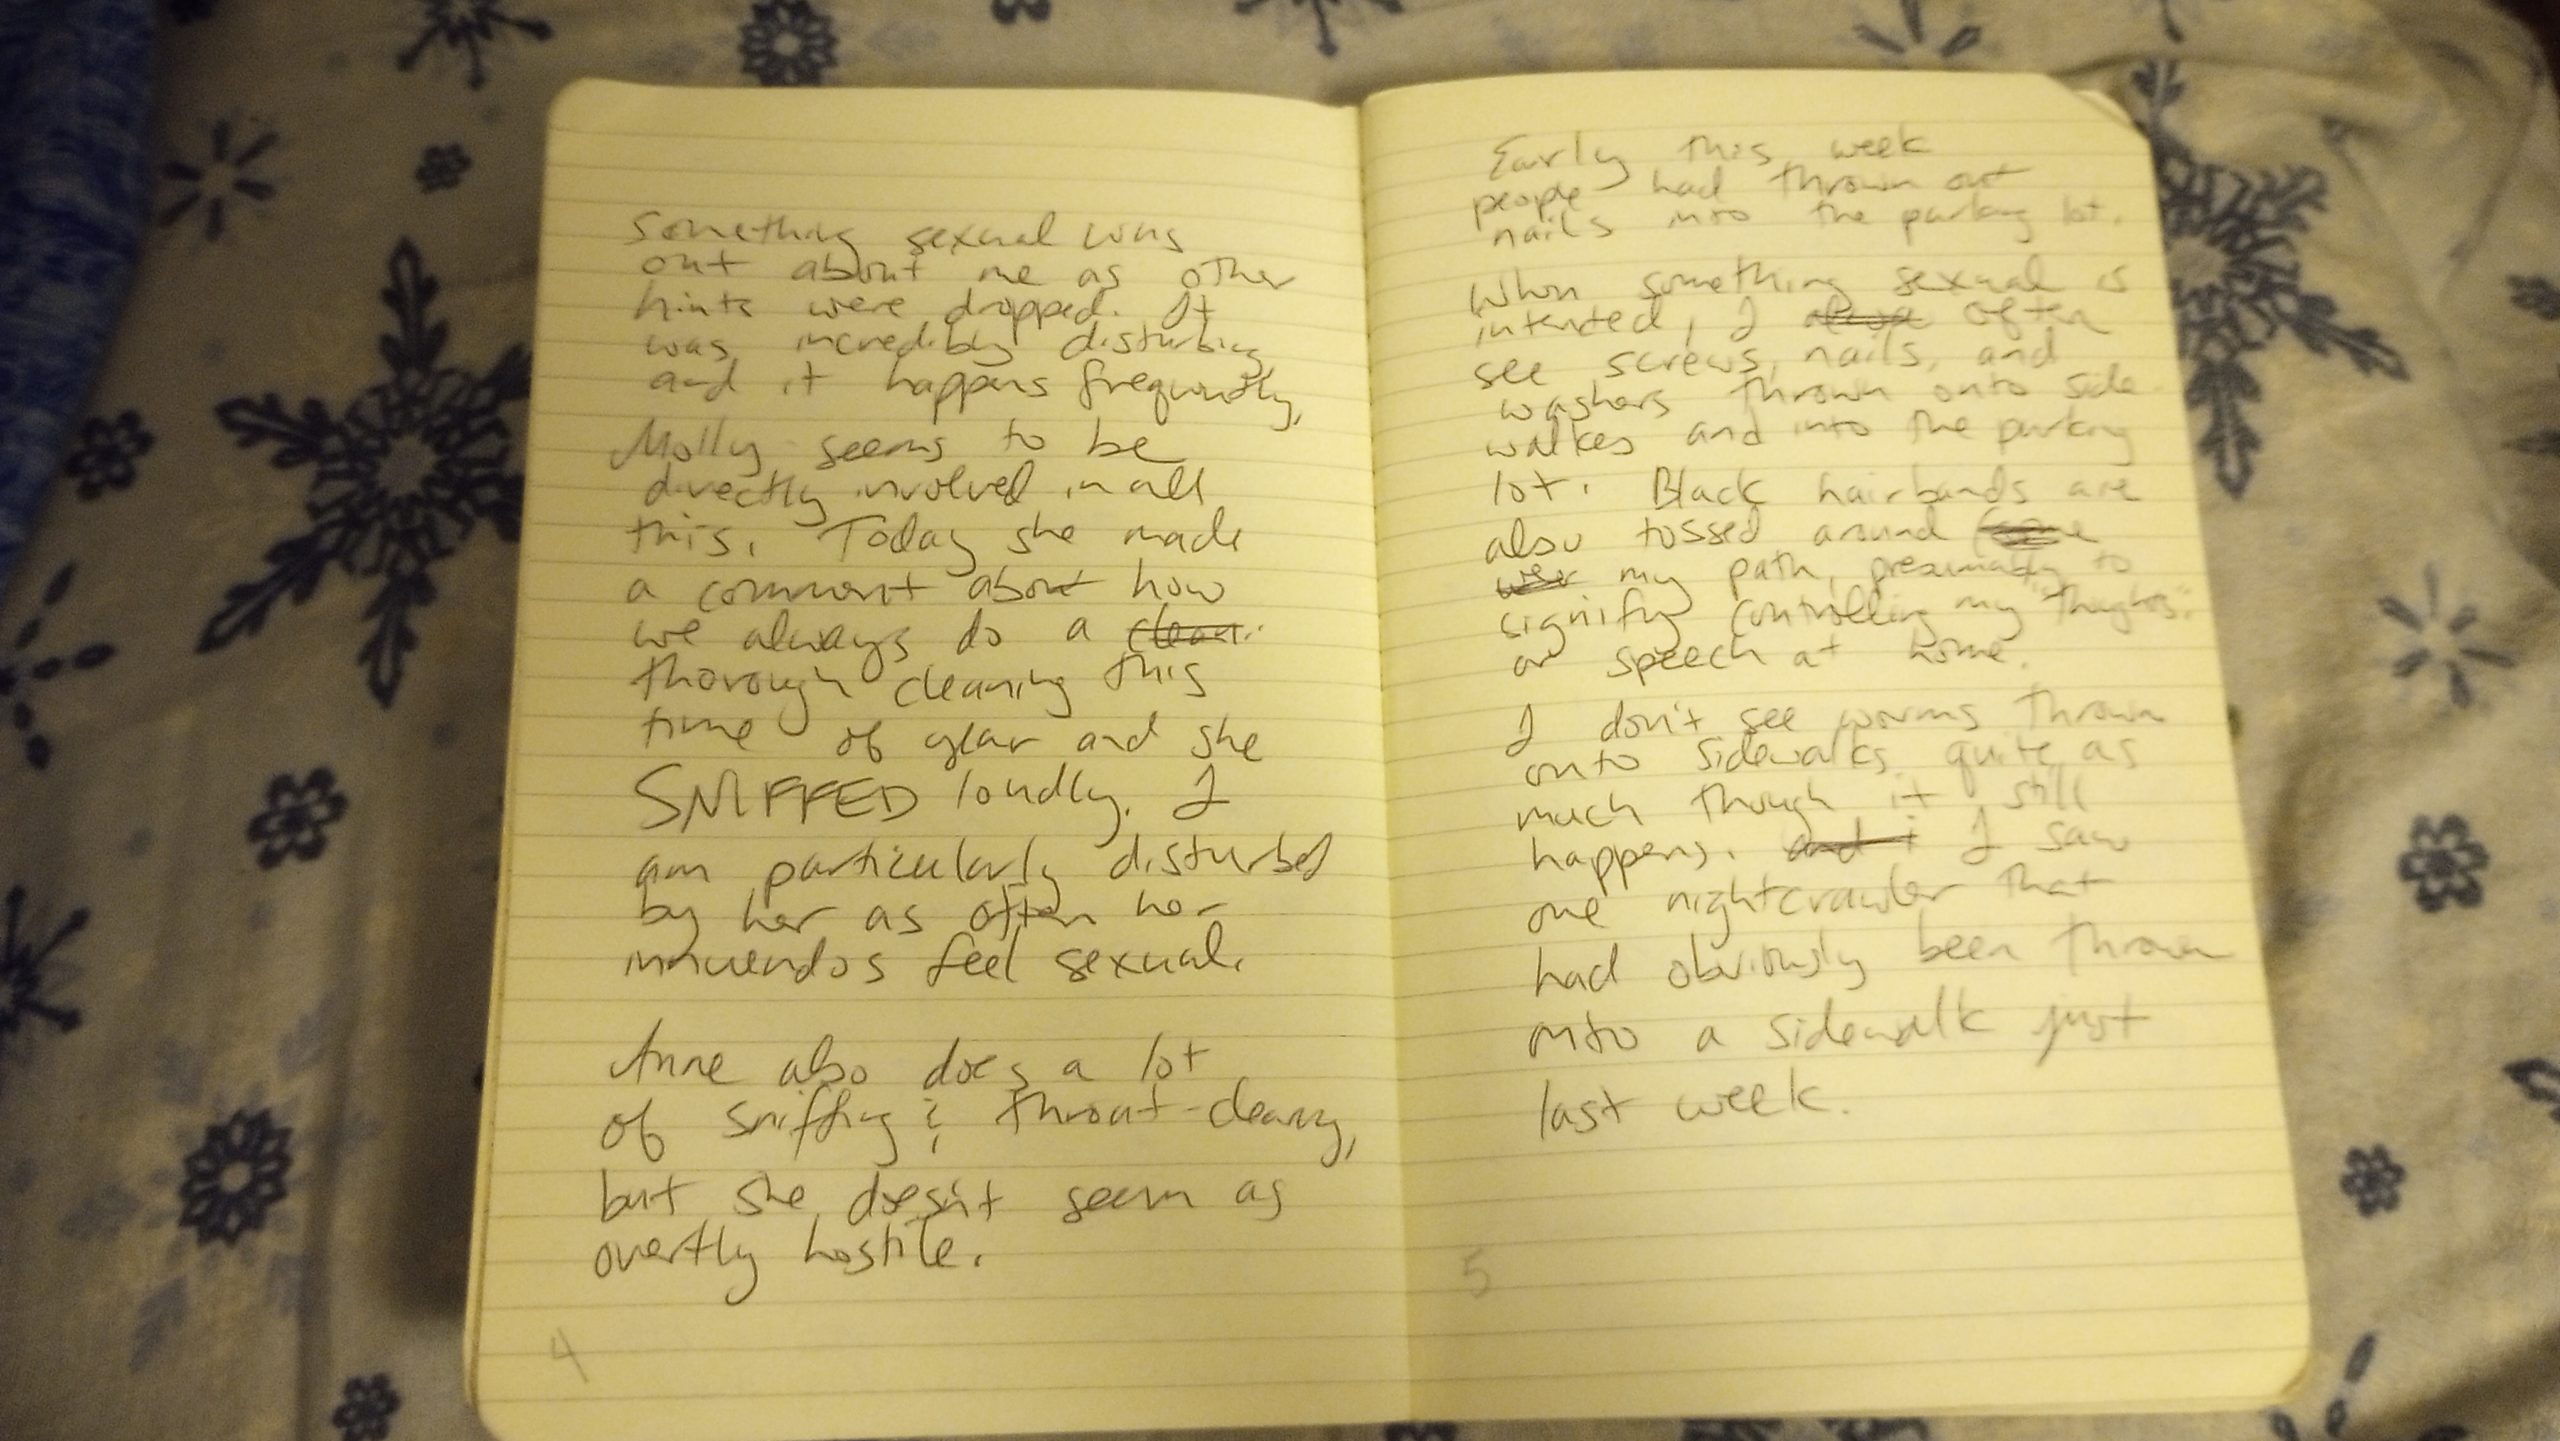 Something sexual was
out about me as other
hints were dropped. It
was incredibly disturbing,
and it happens frequently,
Molly seems to be
directly involved in all
this. Today she made
a comment about how
we always do a clean
thorough cleaning this
time of year and she
SNIFFED loudly. I
am particularly disturbed
by her as often her
innuendos feel sexual.
Anne also does a lot
of sniffing & throat-clearing,
but she doesn't seem as
overtly hostile.
4
Early this week
people had thrown out
nails into the parking lot.
When something sexual is
intented, I often
see screws, nails, and
washers thrown onto side
walkes and into the parking
lot. Black hairbands are
also tossed around
my path, presumably to
signify controlling my "thoughts"
or speech at home.
I don't see worms thrown
onto sidewalks quite as
much though it still
happens. and i I saw
one nightcrawler that
had obviously been thrown
onto a sidewalk just
last week.
5